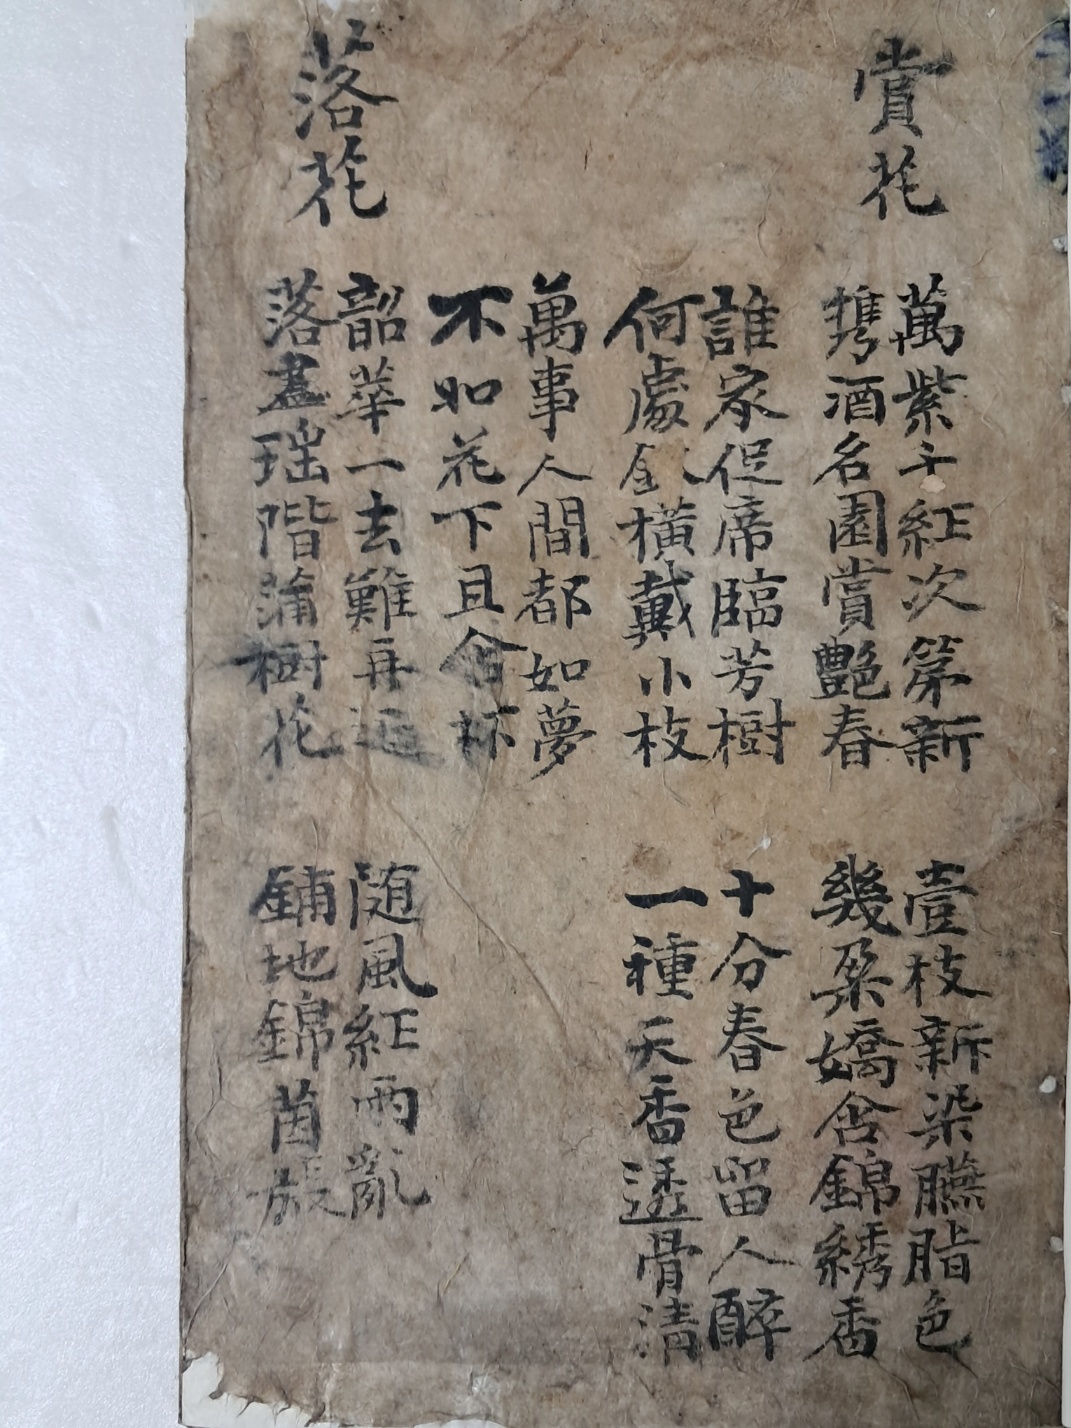 賞花
萬紫千紅次第新
壹枝新染臙脂色
携酒名園賞艷春
幾朶嬌含錦綉香
誰家促席臨芳樹
十分春色留人醉
何處釵橫戴小枝
一種天香透骨清
萬事人間都如夢
不如花下且含杯
落花
韶華一去難再返
随風紅雨亂
落盡瑶階蒲樹花
鋪地錦茵